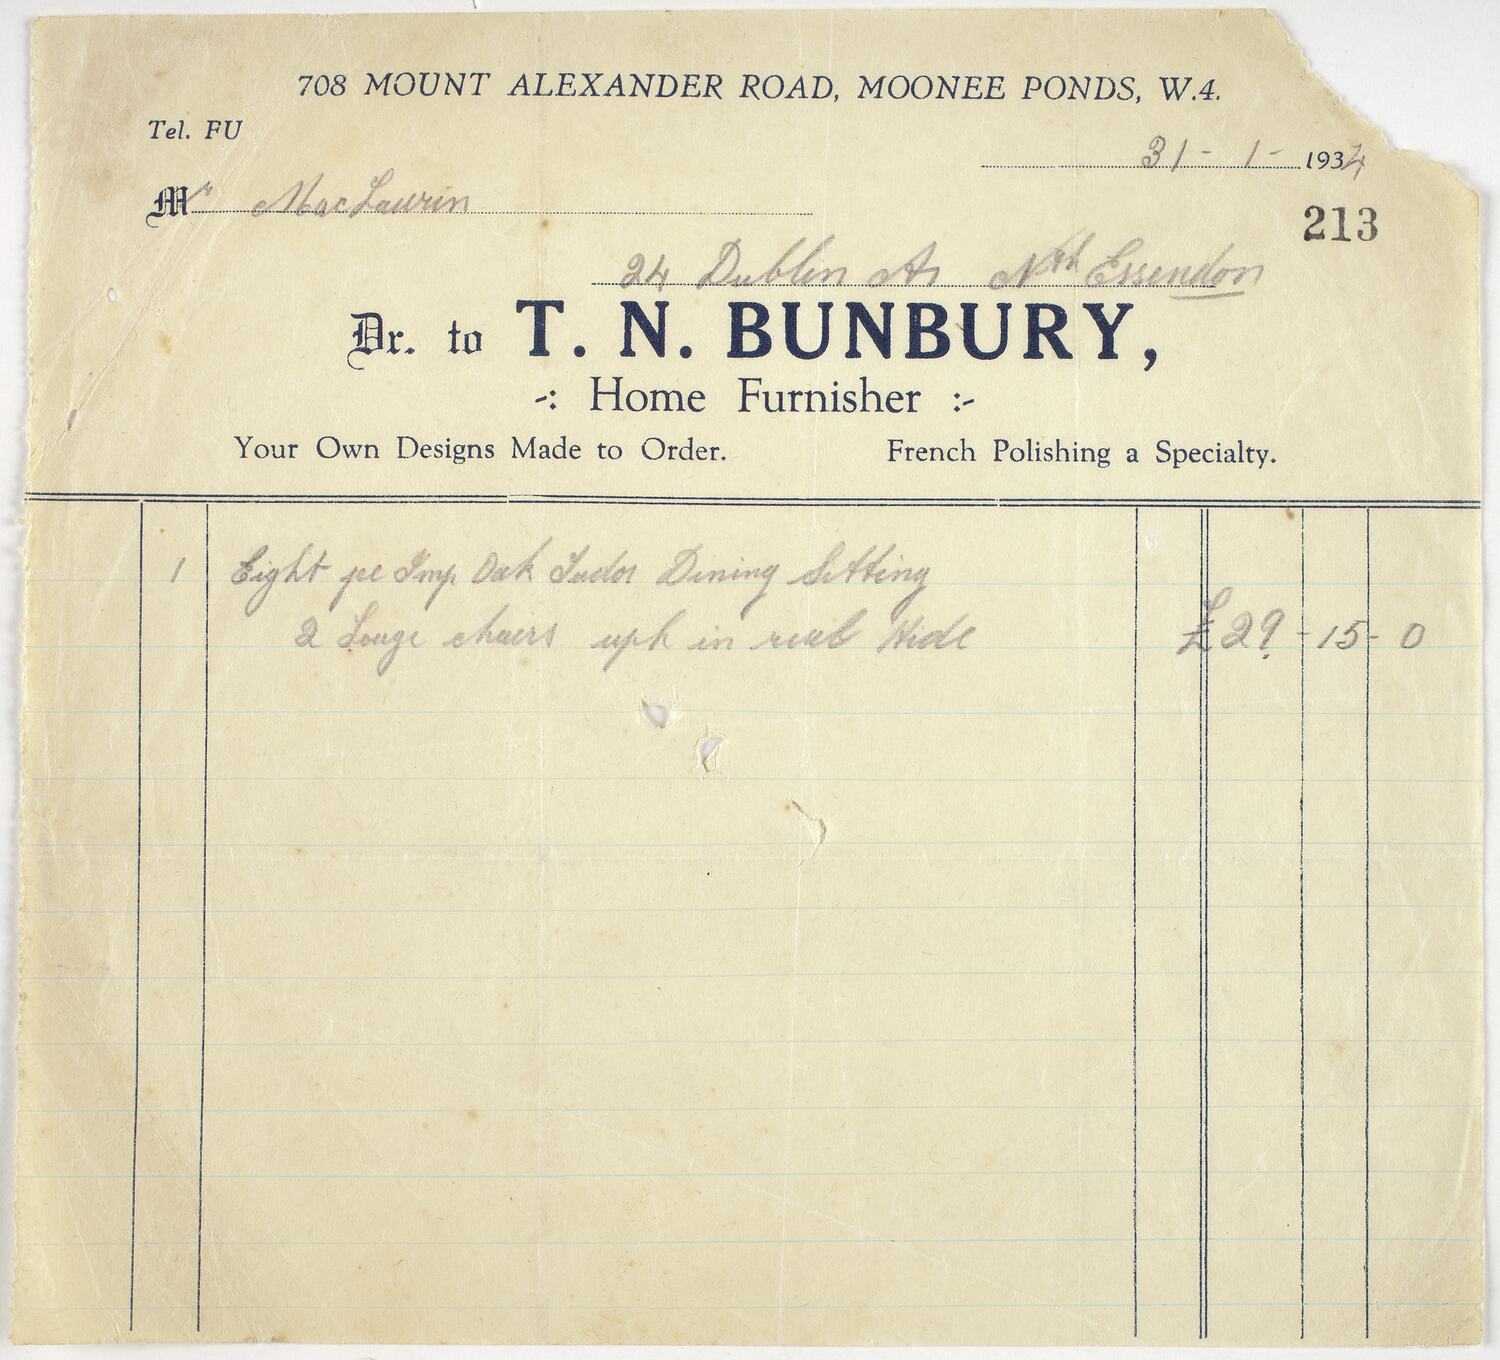 708 MOUNT ALEXANDER ROAD, MOONEE PONDS, W.4.
Tel. FU
31 - 1 - 1934
Mr MacLaurin
213
24 Dublin Av Nth Essendon
Dr. to T. N. BUNBURY,
-: Home Furnisher :-
Your Own Designs Made to Order. French Polishing a Specialty.
1 Eight pe Imp Oak Tudor Dining Sitting
2 Louge chairs uph in real Hide £29 - 15 - 0